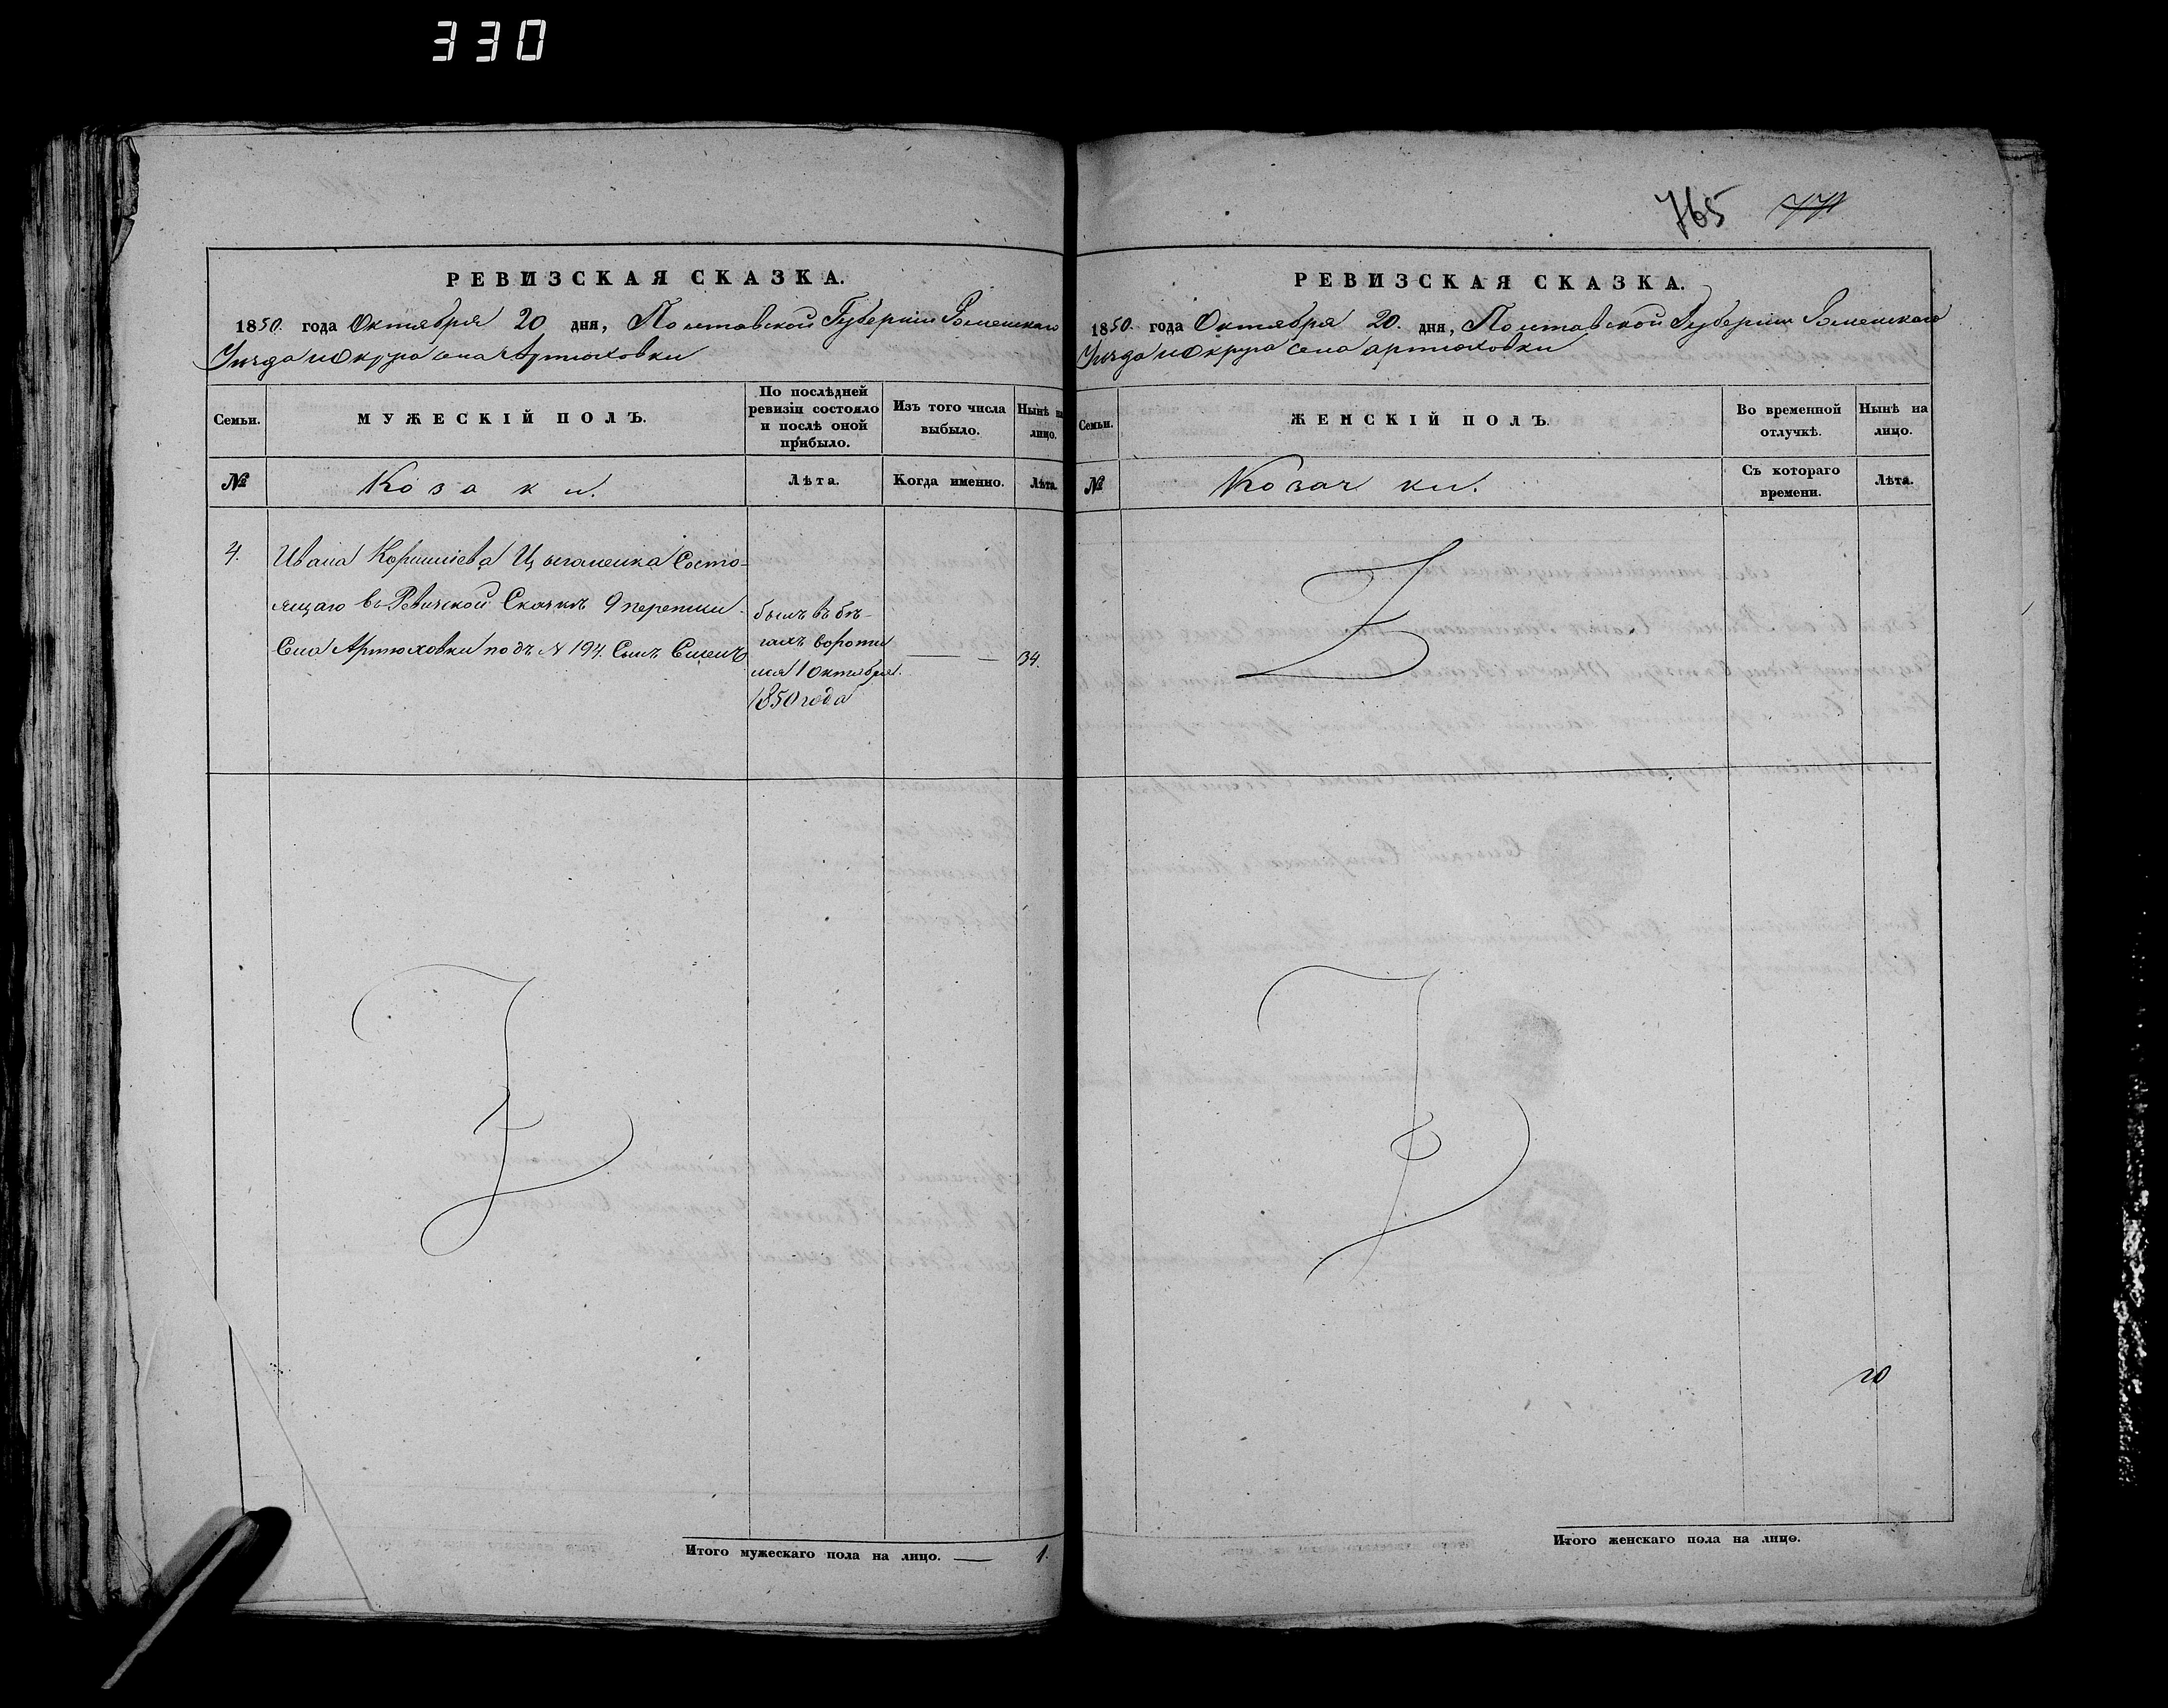 330
765 771
РЕВИЗСКАЯ СКАЗКА.
1850. года Октября 20 дня, Полтавской Губерніи Роменскаго
Уѣзда и Округа села Артюховки
Семьи.
МУЖЕСКІЙ ПОЛЪ.
По послѣдней ревизіи состояло и послѣ оной прибыло.
Изъ того числа выбыло.
Нынѣ на лицо.
№
Козаки.
Лѣта.
Когда именно.
Лѣта.
4.
Ивана Цыганенка Состо-
ящаго въ Ревизской Сказкѣ 9 переписи
Села Артюховки подъ № 194. Сынъ Семенъ
былъ въ бѣ-
гахъ вороти
лся 1 Октября
1850 года
34.
Итого мужескаго пола на лицо. — 1.
РЕВИЗСКАЯ СКАЗКА.
1850. года Октября 20. дня, Полтавской Губерніи Роменскаго
Уѣзда и Округа села артюховки
Семьи.
ЖЕНСКІЙ ПОЛЪ.
Во временной отлучкѣ.
Нынѣ на лицо.
№
Козачки.
Съ котораго времени.
Лѣта.
Итого женскаго пола на лицо.